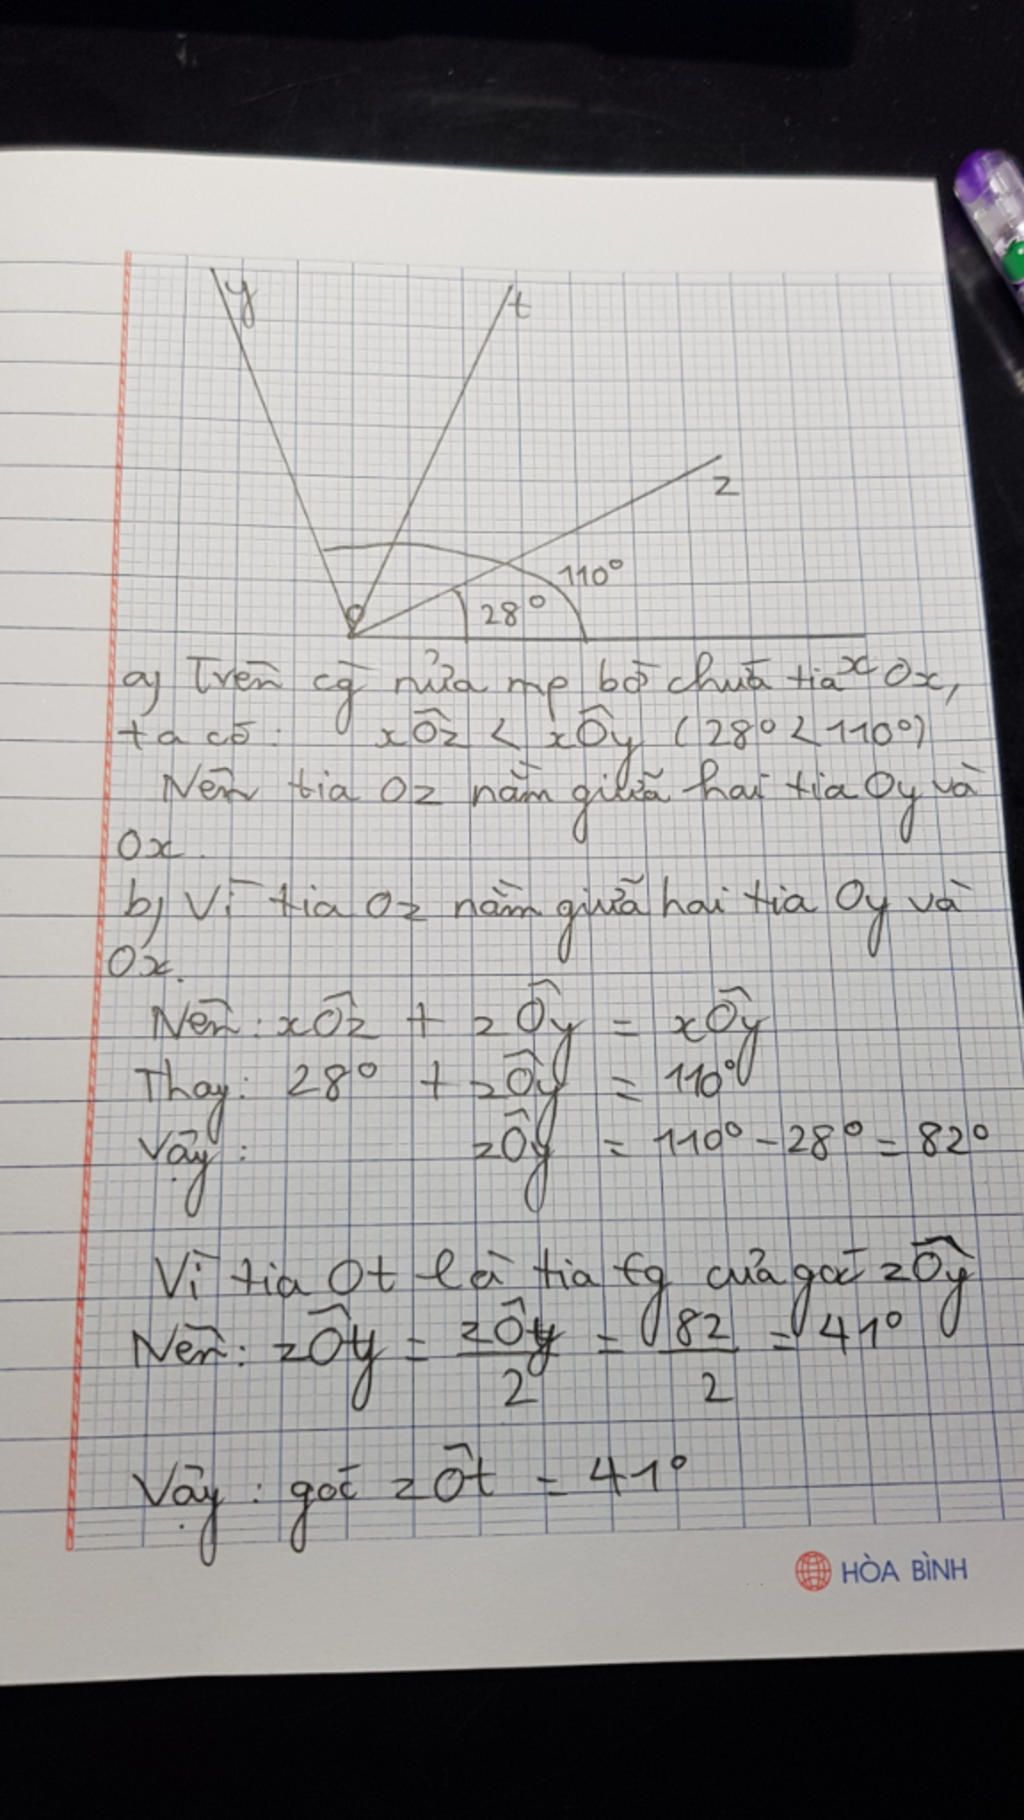 y
t
z
110°
28°
O
x
a) Trên cg nửa mp bờ chứa tia Ox,
ta có: xÔz < xÔy (28° < 110°)
Nên tia Oz nằm giữa hai tia Oy và
Ox.
b) Vì tia Oz nằm giữa hai tia Oy và
Ox.
Nên: xÔz + zÔy = xÔy
Thay: 28° + zÔy = 110°
Vậy: zÔy = 110° - 28° = 82°
Vì tia Ot là tia fg của góc zÔy
Nên: zÔy = zÔy/2 = 82/2 = 41°
Vậy: góc zÔt = 41°
HÒA BÌNH